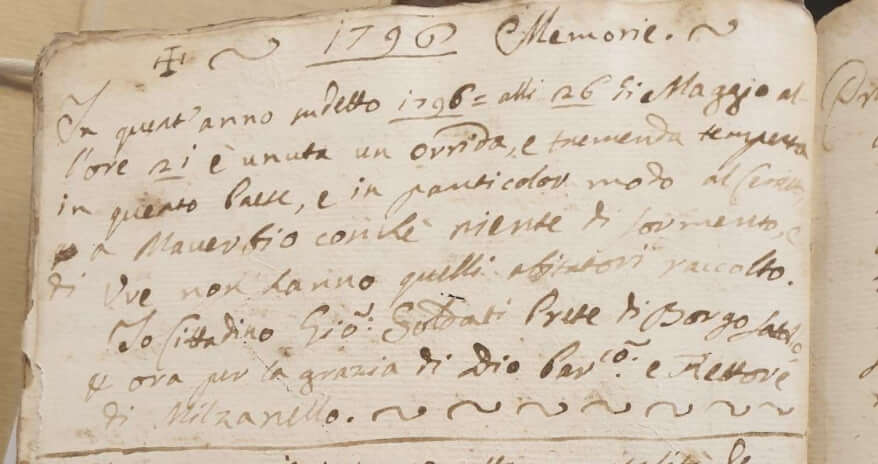 1796 Memorie.
In quest'anno sudetto 1796= alli 26 di Maggio al-
l'ore 21 è unuta un orrida, e tremenda tempesta
in questo Paese, e in particolor modo al
a Maverbio conchè niente di formento, e
di Uve non hanno quelli abitatori raccolto.
Io Cittadino Gio: Soldati Prete di Borgo Satollo
ora per la grazia di Dio Par.co: e Rettore
di Milzanello.